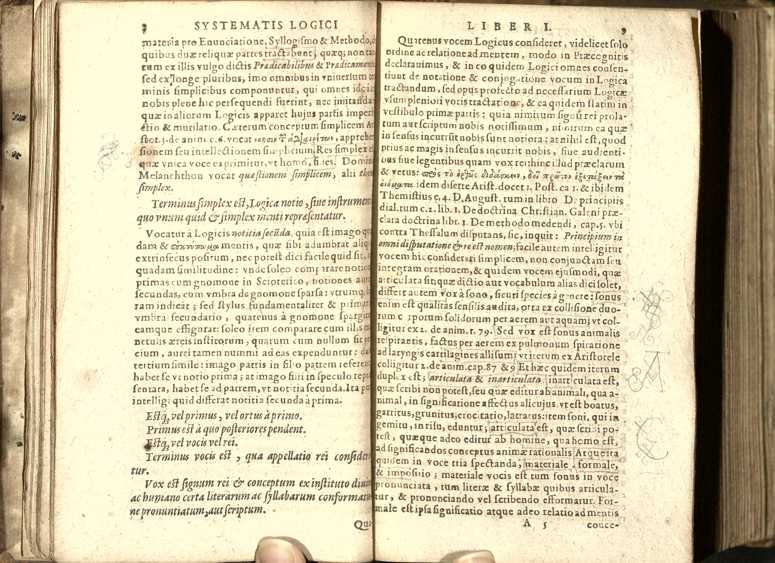 8 SYSTEMATIS LOGICI
materia pro Enunciatione, Syllogismo & Methodo, de
quibus duæ reliquæ partes tractabunt, quæq; non tan-
tum ex illis vulgo dictis Prædicabilibus & Prædicamen
sed & longe pluribus, imo omnibus in vniuersum ter-
minis simplicibus componuntur, qui omnes ideo in
nobis plene hic persequendi fuerint, nec imitanda
quæ in aliorum Logicis apparet hujus partis imperfe-
ctio & mutilatio. Cæterum conceptum simplicem Ari-
stot. 3. de anim. c. 6. vocat apprehen
sionem seu intellectionem simplicium. Res simplex est
quæ vnica voce exprimitur, vt homo, Domin
Melanchthon vocat quæstionem simplicem, alii them
simplex.
Terminus simplex est, Logica notio, siue instrumen
quo vnum quid & simplex menti repræsentatur.
Vocatur à Logicis notitia secūda. quia est imago quæ
dam & mentis, quæ sibi adumbrat aliquid
extrinsecus positum, nec potest dici facile quid sit,
quadam similitudine: vnde soleo comparare notiones
primas cum gnomone in Scioterico, notiones autem
secundas, cum vmbra de gnomone sparsa: vtrumq;
ram indicat; sed stylus fundamentaliter & primo,
vmbra secundario, quatenus à gnomone spargitur
eamque effigurat: soleo item comparare cum illis mo-
netulis æreis institorum, quarum cum nullum sit pre-
cium, aurei tamen nummi ad eas expenduntur: &
tertium simile: imago patris in filio patrem refert
habet se vt notio prima; at imago filii in speculo repræ
sentata, habet se ad patrem, vt notitia secunda. Ita potest
intelligi quid differat notitia secunda à prima.
Estq́; vel primus, vel ortus à primo.
Primus est à quo posteriores pendent.
Estq́; vel vocis vel rei.
Terminus vocis est, qua appellatio rei consideratur
tur.
Vox est signum rei & conceptum ex instituto diuino
ac humano certa literarum ac syllabarum conformatio
ne pronuntiatum, aut scriptum.
Qua
LIBER I. 9
Quatenus vocem Logicus consideret, videlicet solo
ordine ac relatione ad mentem, modo in Præcognitis
declarauimus, & in eo quidem Logici omnes consen-
tiunt de notatione & conjugatione vocum in Logica
tractandum, sed opus profecto ad necessarium Logicæ
vsum pleniori vocis tractatione, & ea quidem statim in
vestibulo primæ partis: quia nimirum signo rei prola-
tum aut scriptum nobis notissimum, vt orum ea quæ
in sensus incurrit nobis sunt notiora: at nihil est, quod
prius ac magis in sensus incurrit nobis, siue audienti-
bus siue legentibus quam vox recthinc illud præclarum
& vetus:
idem diserte Arist. docet 1. Post. ca 1. & ibidem
Themistius c. 4. D. August. tum in libro D: principiis
dial. tum c. 2. lib. 1. De doctrina Christian. Galeni præ-
clara doctrina libr. 1. De methodo medendi, cap. 5. vbi
contra Thessalum disputans, sic, inquit: Principium in
omni disputatione & re est nomen; facile autem intelligitur
vocem hic considerari simplicem, non conjunctam seu
integram orationem, & quidem vocem ejusmodi, quæ
articulata sit quæ dictio aut vocabulum alias dici solet,
differt autem vox à sono, sicuti species à genere: sonus
enim est qualitas sensilis audita, orta ex collisione duo-
rum corporum solidorum per aerem aut aquam; vt col-
ligitur ex 2. de anim. t. 79. Sed vox est sonus animalis
respirantis, factus per aerem ex pulmonum spiratione
ad laryngis cartilagines allisum; vt iterum ex Aristotele
colligitur 1. de anim. cap. 87 & 9 Et hæc quidem iterum
duplex est; articulata & inarticulata. inarticulata est,
quæ scribi non potest, seu quæ editur à banimali, qua a-
nimal, in significatione affectus alicujus. vt est boatus,
garritus, grunitus, crocitatio, latratus: item soni, qui in
gemitu, in risu, eduntur; articulata est, quæ scribi po-
test, quæque adeo editur ab homine, qua homo est,
ad significandos conceptus animæ rationalis. Atque ita
quidem in voce tria spectanda, materiale, formale,
& impositio; materiale vocis est tum sonus in voce
pronunciata, tum literæ & syllabæ quibus articula-
tur, & pronunciando vel scribendo efformatur. For-
male est ipsa significatio atque adeo relatio ad mentis
A 5 conce-